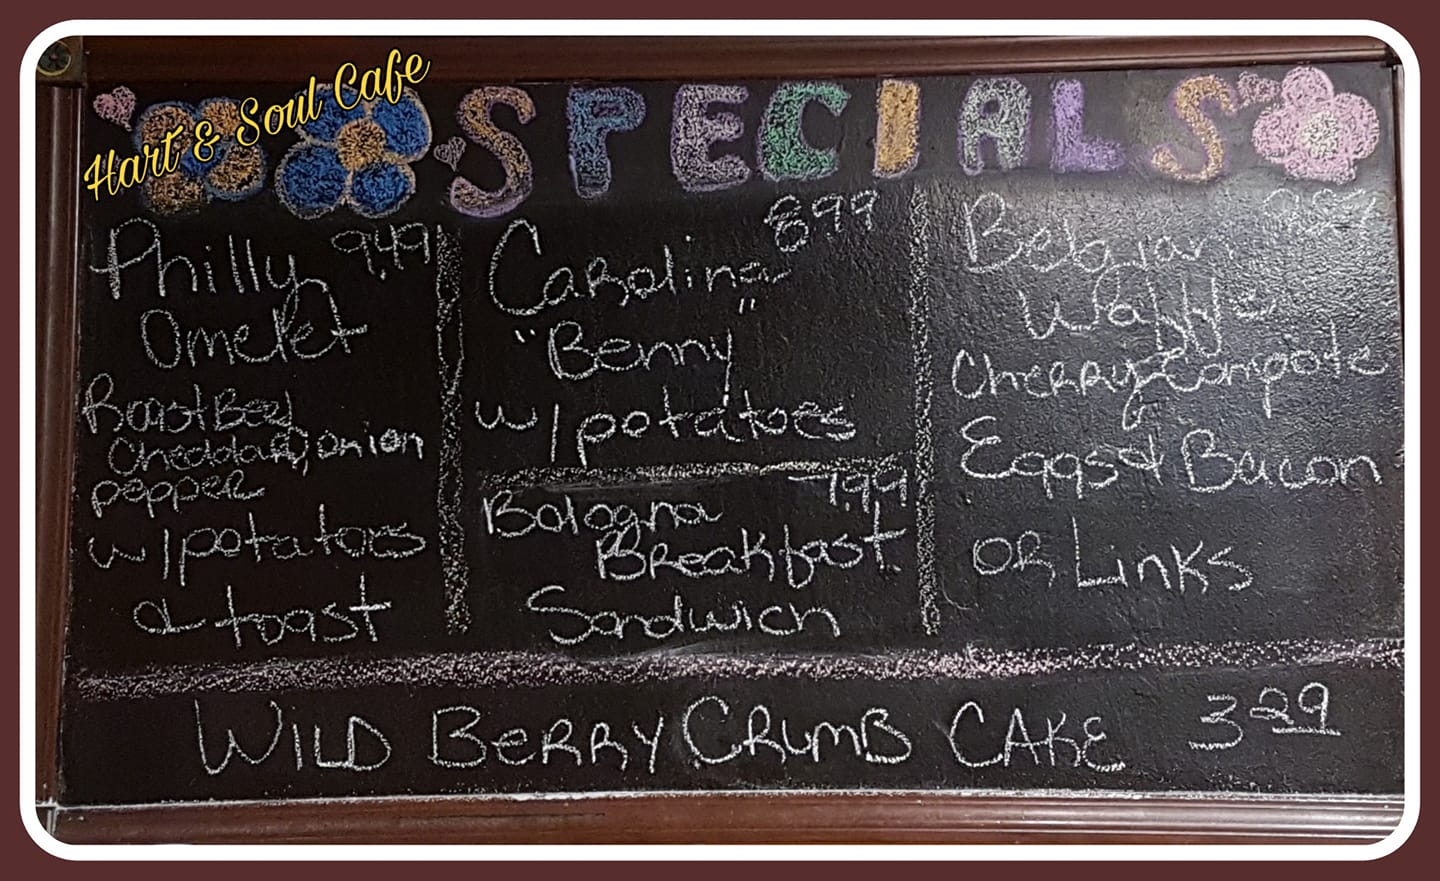 Hart & Soul Cafe
SPECIALS
Philly 9.49
Omelet
Roast Beef
Cheddar, onion
pepper
w/potatoes
& toast
Carolina 8.99
"Benny"
w/potatoes
Bologna 7.99
Breakfast
Sandwich
Belgian
Waffle
Cherry Compote
Eggs & Bacon
or Links
WILD BERRY CRUMB CAKE 3.29